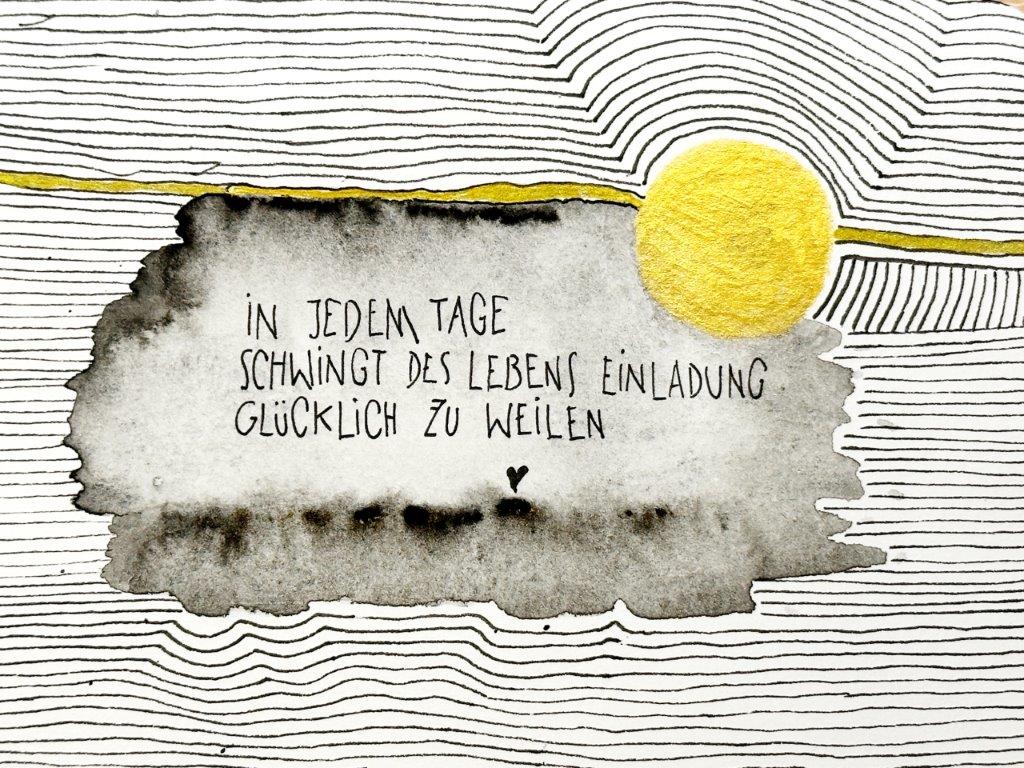 IN JEDEM TAGE
SCHWINGT DES LEBENS EINLADUNG
GLÜCKLICH ZU WEILEN